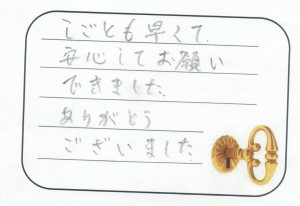 しごとも早くて.
安心してお願い
できました.
ありがとう
ございました.